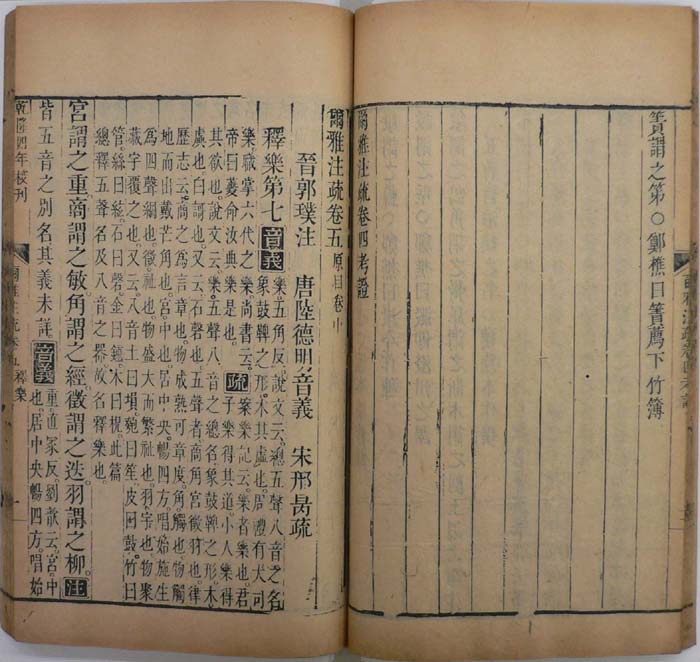 簀謂之第○鄭樵曰簀薦下竹簿
爾雅注疏卷四考證
爾雅注疏卷五原目卷中
晉郭璞注 唐陸德明音義 宋邢昺疏
釋樂第七 音義 樂五角反說文云總五聲八音之名
象鼓鞞之形木其虡也周禮有大司
樂職掌六代之樂尚書云
帝曰夔命汝典樂是也 疏 案樂記云樂者樂也君
子樂得其道小人樂得
其欲也說文云樂五聲八音之總名象鼓鞞之形木
虡也又云石磬也五聲者商角宮徵羽也律
歷志云商之為言章也物成熟可章度角觸也物觸
地而出戴芒角也宮中也居中央暢四方唱始施生
為四聲綱也徵祉也物盛大而繁祉也羽宇也物聚
藏宇覆之也又云八音土曰塤匏曰笙皮曰鼓竹曰
管絲曰絃石曰磬金曰鐘木曰柷此篇
總釋五聲名及八音之器故名釋樂也
宮謂之重商謂之敏角謂之經徵謂之迭羽謂之柳 注
皆五音之別名其義未詳 音義 重直冢反劉歆云宮中
也居中央暢四方唱始
乾隆四年校刊 爾雅注疏卷五 釋樂